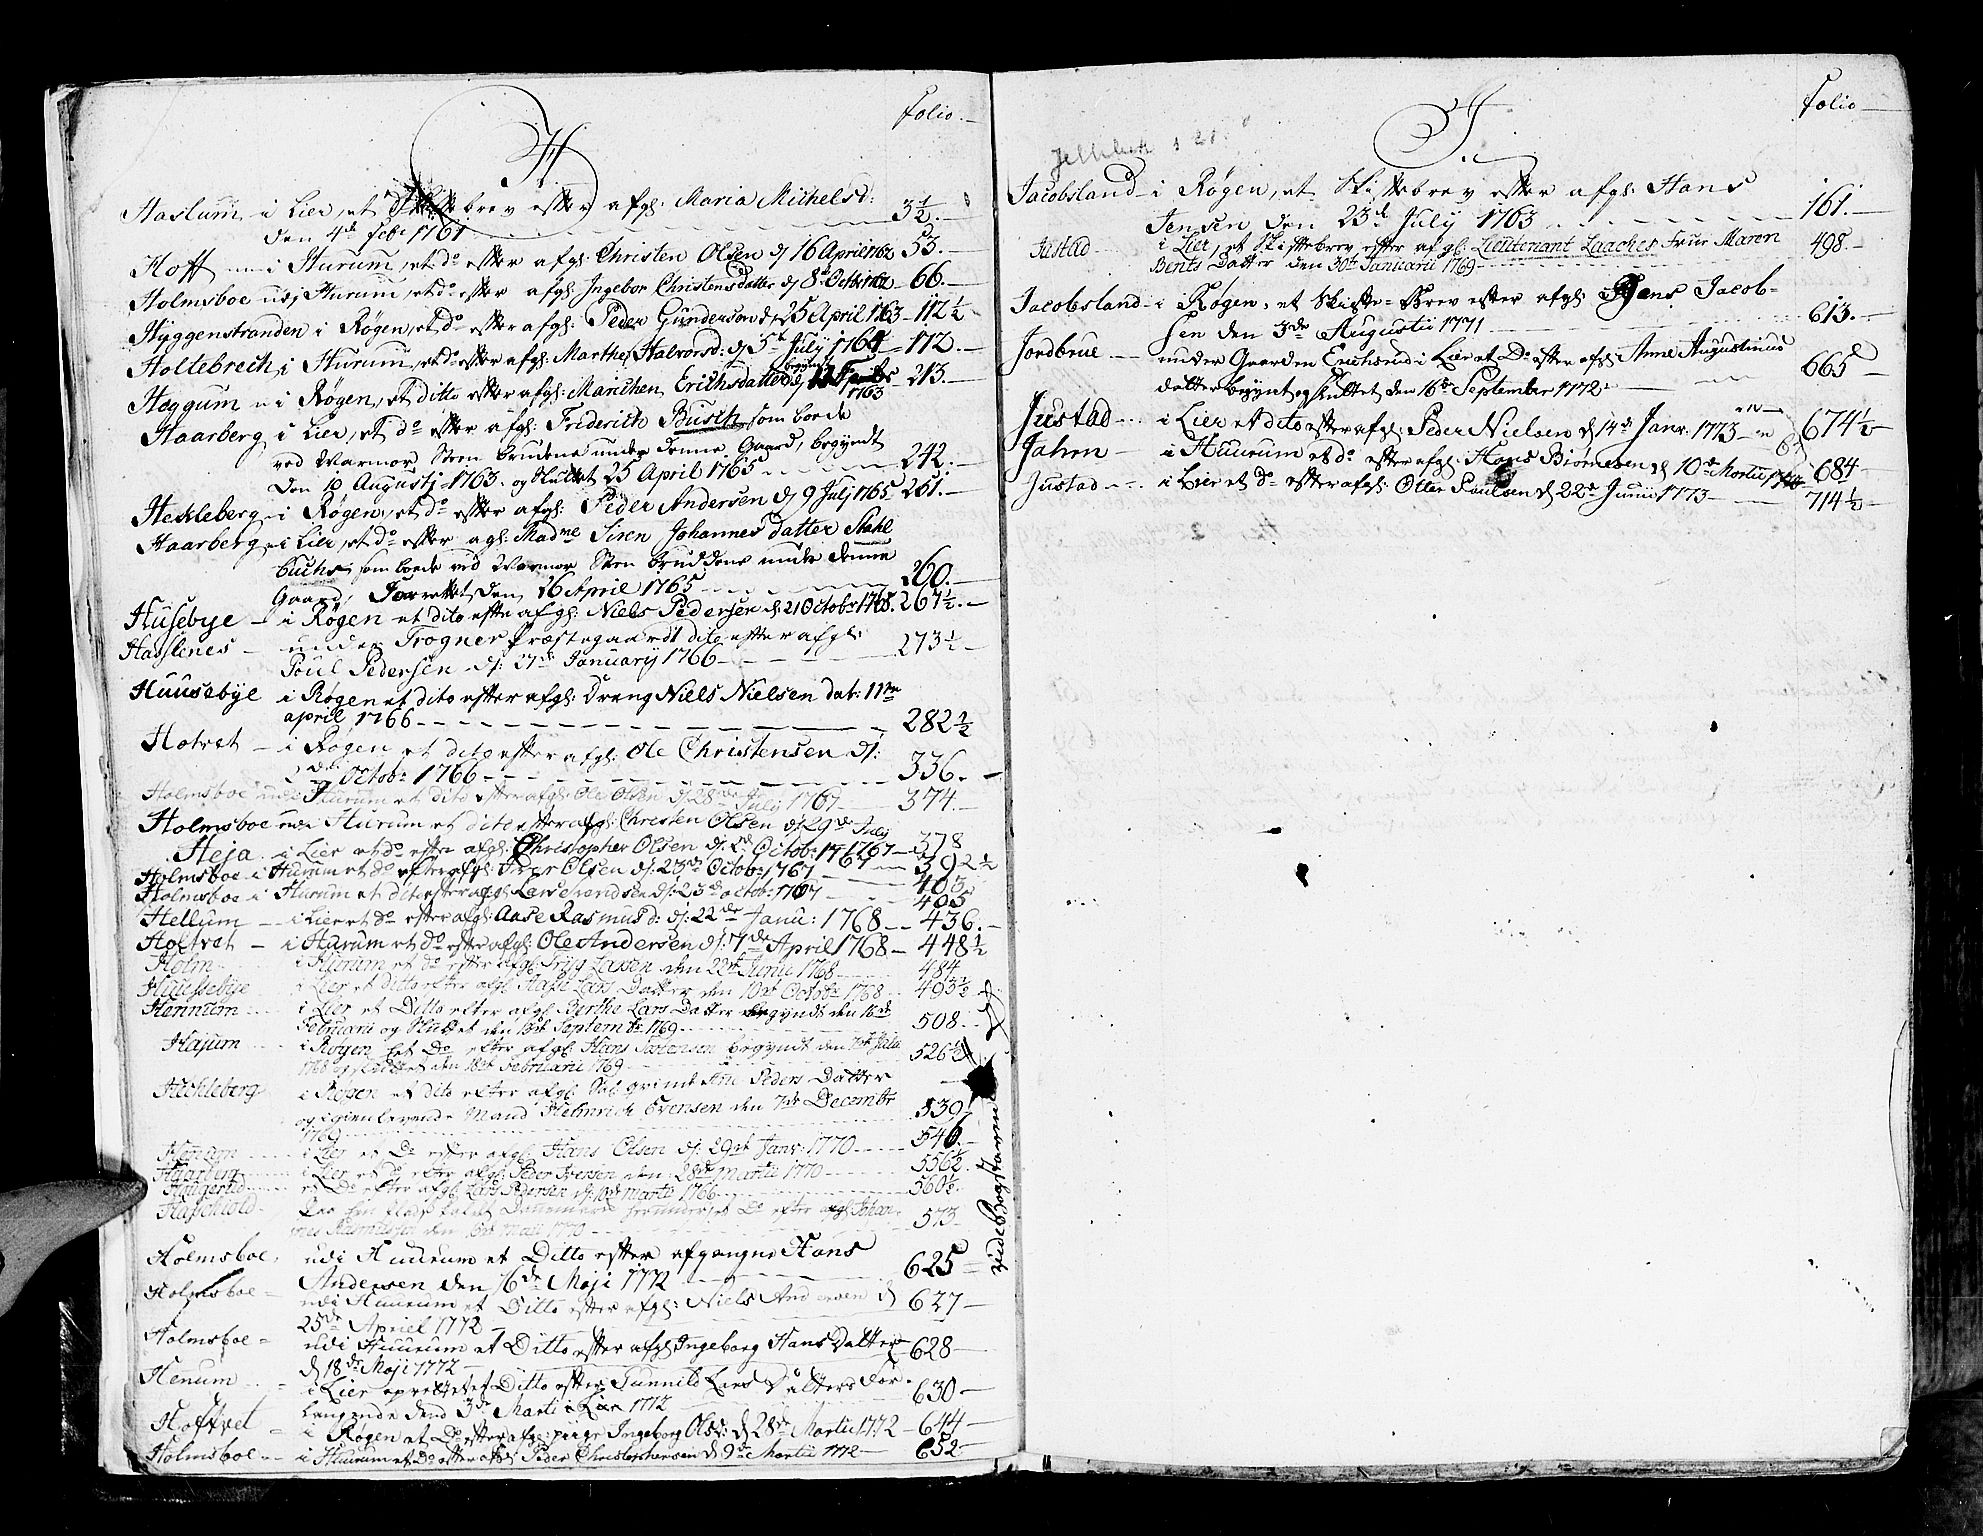 Folio.
H
Haslum i Lier, et Skiftebrev efter afgl: Maria Michelsd:
den 4de Febr 1761 3½.
Hoff i Hurum, et do efter afgl: Christen Olsen d 16 April 1762 53.
Holmsboe udj Hurum, et do efter afgl: Ingebor Christensdatter d 8de Octbr 1762 66.
Hyggenstranden i Røgen, et do efter afgl: Peder Gunderson d 25 April 1763 112½
Holtebrech i Hurum, et do efter afgl: Marthe Halvorsd: d 5te July 1764 172.
Heggum i Røgen, et ditto efter afgl: Marichen Erichsdatter d begyndt 1763 213.
Haarberg i Lier, et do efter afgl: Friderich Busch som boede
ved Warmor Steen brudene under denne Gaard, begyndt
den 10 Augustj 1763. og Sluttet 25 April 1765 242.
Heckleberg i Røgen, et do efter afgl: Peder Andersen d 9 Julj 1765 251.
Haarberg i Lier, et do efter agl: Madme Siren Johannes datter Stahl
buchs, som boede ved Warmor Steen bruddene under denne
Gaard, Forrettet den 26 April 1765 260.
Husebye i Røgen et dito efter afgl: Niels Pedersen d 21 Octobr 1765. 267½.
Haslenes under Frogner Præstegaard et dito efter afgl:
Poul Pedersen d: 27de January 1766 273½
Huusebye i Røgen et dito efter afgl: Dreng Niels Nielsen dat: 11te
april 1766 282½
Hotvet i Røgen et dito efter afgl: Ole Christensen d:
Octobr 1766 336.
Holmsboe udi Hurum et dito efter afgl: Ole Olsen d: 28de July 1767 374.
Holmsboe udi Hurum et dito efter afgl: Christen Olsen d: 29de July
Heja i Lier et do efter afgl: Christopher Olsen d: Octobr 1767 378
Holmsboe i Hurum et do efter afgl: Iver Olsen d: 23de Octobr 1767 392½
Holmsboe i Hurum et dit efter afgl Lars Svendsen d: 23de octobr 1767 403
405
Hellum i Lier et do efter afgl: Aase Rasmusd: d: 22de Janu: 1768 436.
Holtvet i Hurum et do efter afgl: Ole Andersen d: 7de April 1768 448½
Holm i Hurum et do efter afgl: Larsen den 22de Junii 1768 484
Huussebye i Lier et ditto efter afgl Aase Lars Datter den 10de Octobr 1768 493½
Hennum i Lier et Ditto efter afgl Berthe Lars Datter begyndt den 16de
Februarii og Sluttet den 18de Septembr 1769 508
Højum i Røgen et Do efter afgl: Hans Sørensen begyndt den 7de Julii
1768 og Sluttet den 18de Februarii 1769 526½
Heckleberg i Røgen et dito efter afgl: Sal: qvinde Ane Peders Datter
og igienlevende Mand Helmrich Evensen den 7de Decembr
1769 539
Henum i Lier et Do efter afgl Hans Olsen d: 29de Janr: 1770 546.
Haarberg i Lier et do efter afgl: Peder Iversen den 28de Martii 1770 556½
Haugerud et Do efter afgl Lars Pedersen d: 10de Martii 1766 560½
Haschiold Paa Een Plads kaldt Dannemarch herunder et Do efter afgl Johan
nes Rasmusen den 16de Maii 1770 573
Holmsboe, udi Huurum et Ditto efter afgangne Hans
Andersen den 16de Maji 1772 625
Holmsboe udi Huurum et Ditto efter afgl: Niels Andersen d
25de April 1772 627
Holmsboe udi Huurum et Ditto efter afgl Ingeborg Hans Datter
d 18de Maji 1772 628
Henum i Lier oprettet et Ditto efter Gunnild Lars Datters For-
langende dend 3de Marti i Lier 1772 630
Hoftvet i Røgen et Do efter afgl: pige Ingeborg Olsd: d 28de Martii 1772 644
Holmsboe i Huurum et Do efter afgl Peder Christophersen d 9de Martii 1772 652
vide Bogstaven
Folio
I.
Jacobsland i Røgen, et Skiftebrev efter afgl: Hans
Jensen den 23de July 1763 161.
Justad i Lier, et Skiftebrev efter afgl: Lieutenant Laaches Frue Maren
Bents Datter den 30te Januarii 1769 498.
Jacobsland i Røgen, et Skifte-Brev efter afgl: Jens Jacob-
sen den 3de Augustii 1771 613.
Jordbrue under Gaarden Enchsrud i Lier et Do efter afgl Anne Augustinus
datter begynt og Sluttet den 16de September 1772 665
Justad i Lier et dito efter afgl: Peder Nielsen d 14de Janr. 1773 674½
Jahren i Huurum et do efter afgl: Hans Biørnesen d 10de Martii 684
Justad i Lier et do efter afgl: Otter Poulsen d 22de Junii 1773 714½